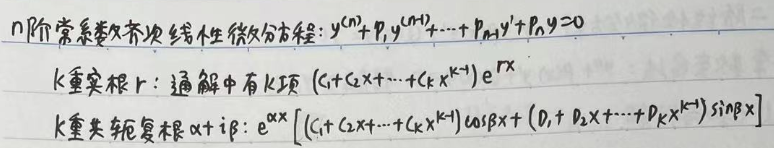 n阶常系数齐次线性微分方程: y⁽ⁿ⁾+P₁y⁽ⁿ⁻¹⁾+…+Pₙ₋₁y'+Pₙy=0
k重实根r: 通解中有k项 (C₁+C₂x+…+Cₖxᵏ⁻¹)eʳˣ
k重共轭复根α+iβ: e^{αx}[(C₁+C₂x+…+Cₖxᵏ⁻¹)cosβx+(D₁+D₂x+…+Dₖxᵏ⁻¹)sinβx]